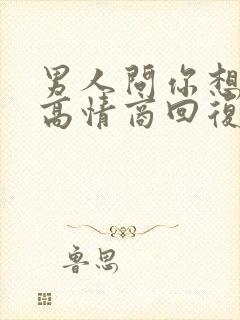 男人問你想
高情商回復
魯思